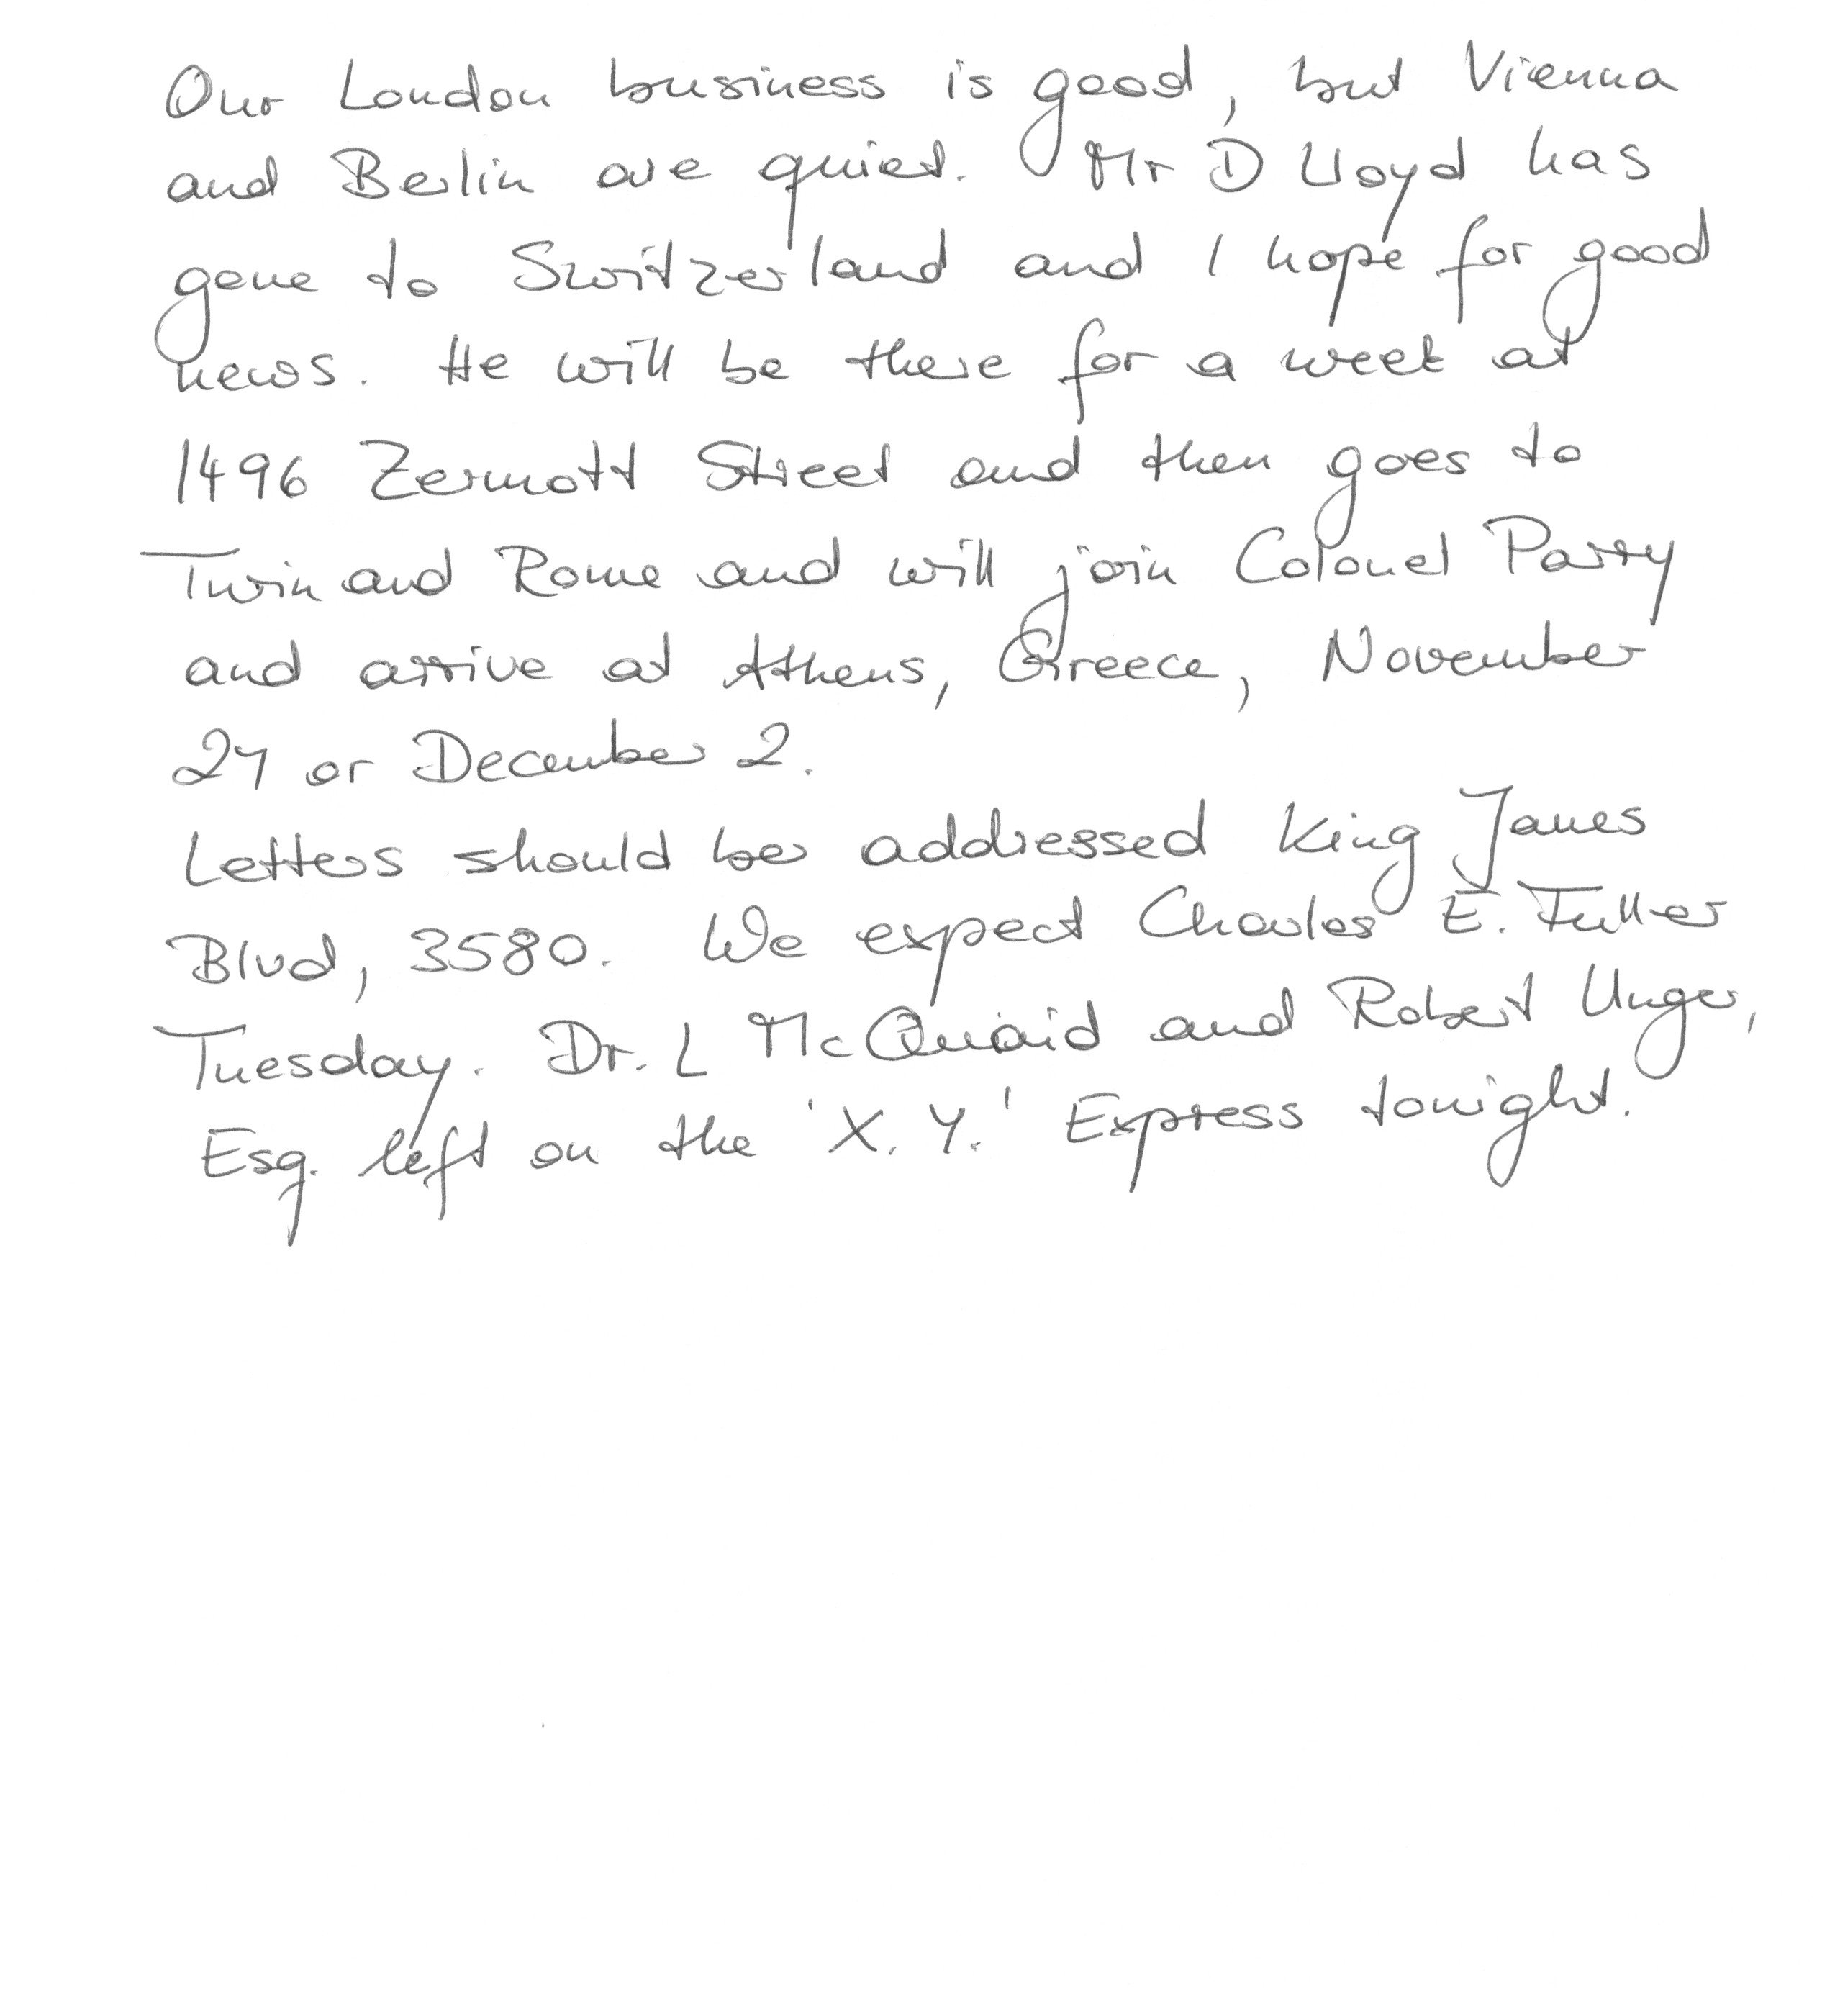 Our London business is good, but Vienna
and Berlin are quiet. Mr D Lloyd has
gone to Switzerland and I hope for good
news. He will be there for a week at
1496 Zermott Street and then goes to
Turin and Rome and will join Colonel Parry
and arrive at Athens, Greece, November
27 or December 2.
Letters should be addressed King James
Blvd, 3580. We expect Charles E. Fuller
Tuesday. Dr. L McQuaid and Robert Unger,
Esq. left on the 'X. Y.' Express tonight.